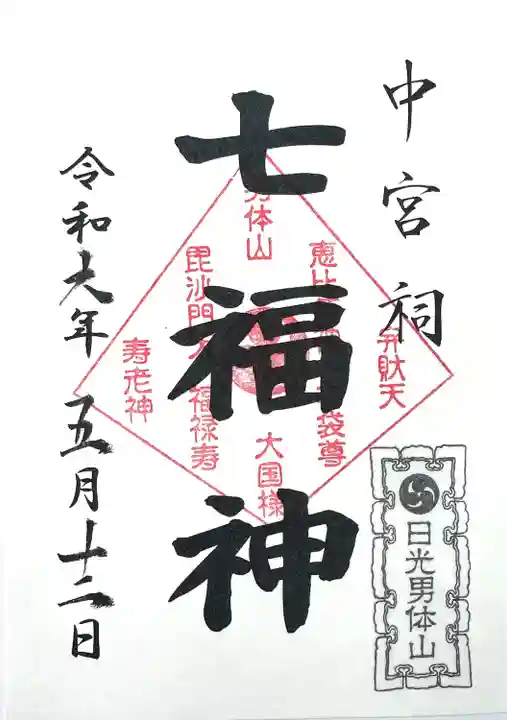 中宮祠
七福神
令和六年五月十二日
男体山
恵比
弁財天
毘沙門天
袋尊
福禄寿
寿老神
大国様
日光男体山